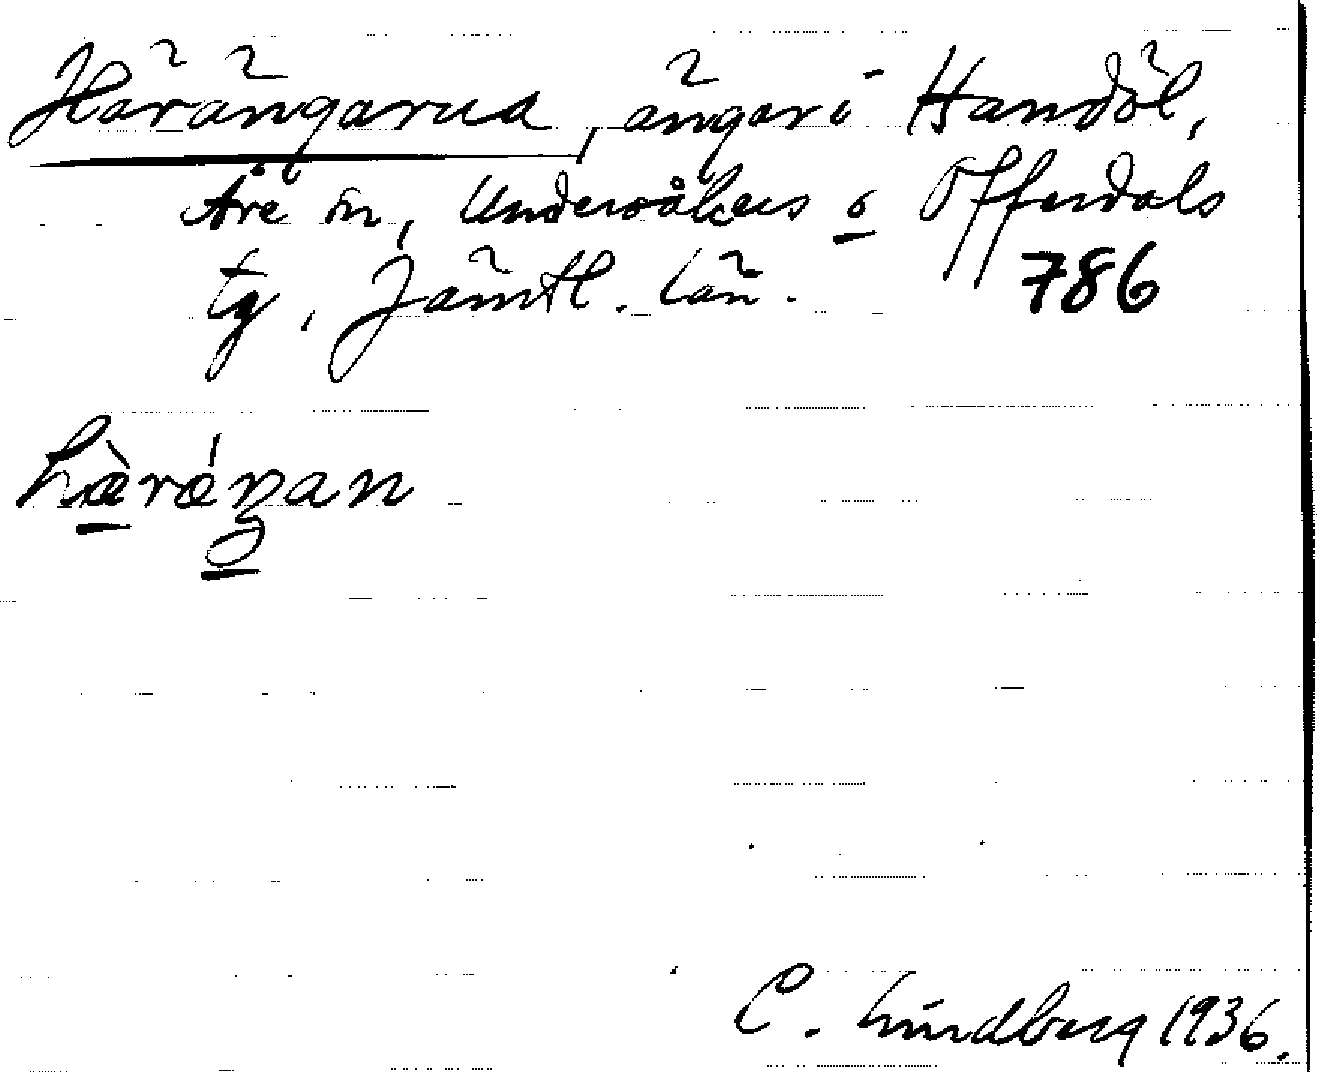 Härängarna, ängar i Handöl,
Åre sn, Undersåkers o Offerdals
tg, Jämtl. län.
786
hæ̀rǽŋan
C. Lindberg 1936.